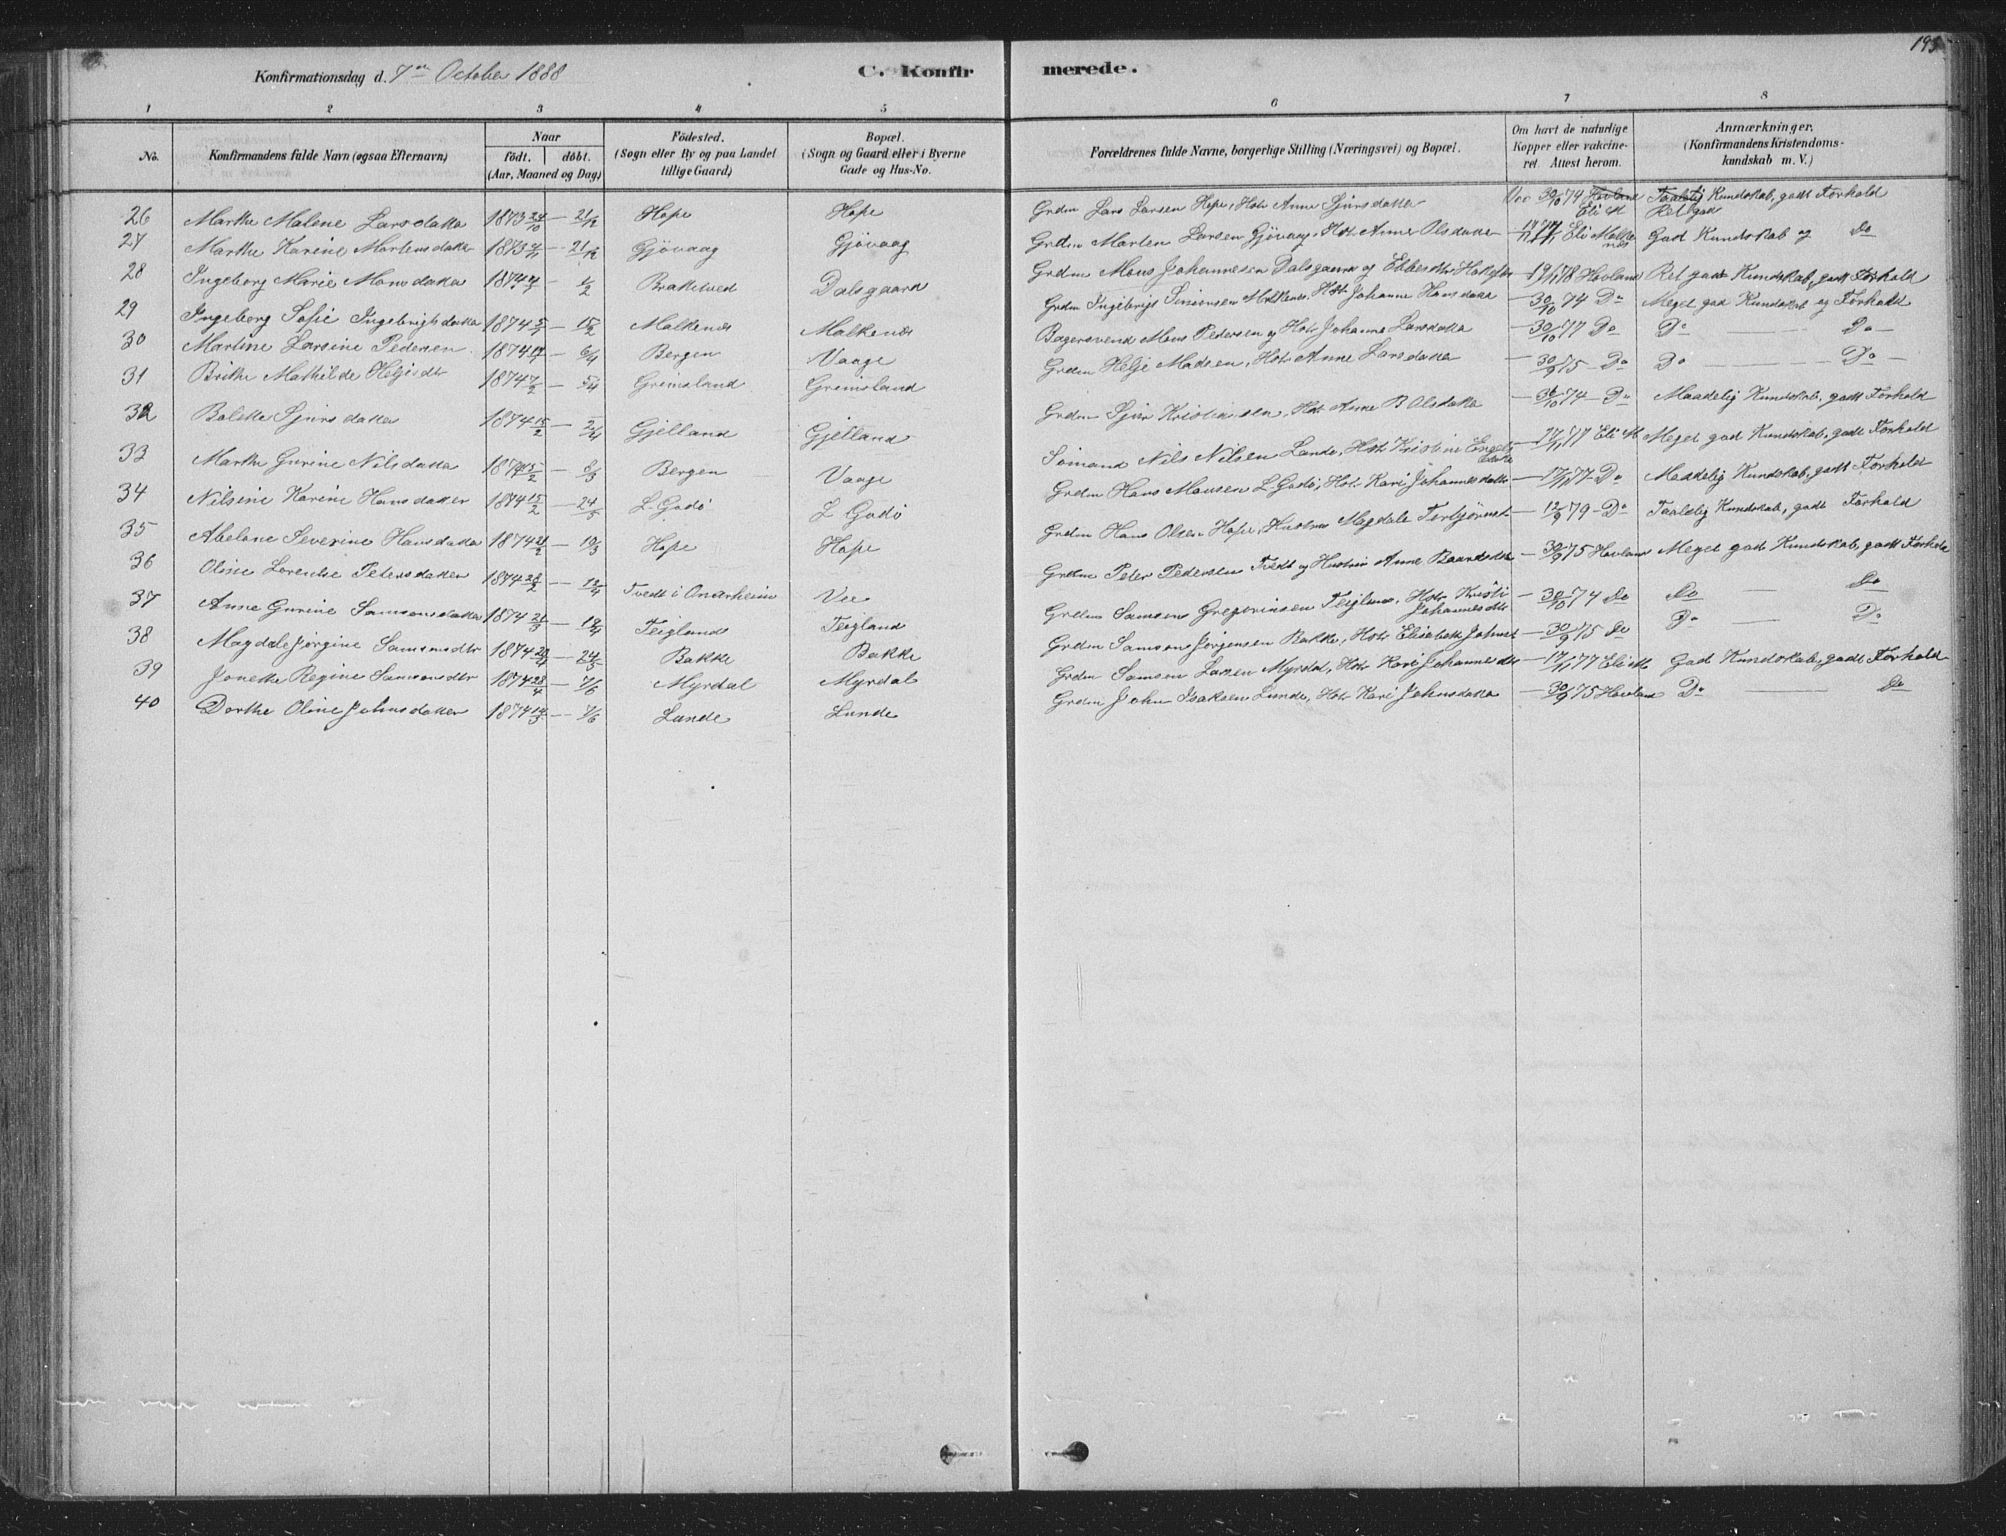 193
Konfirmationsdag d. 7de October 1888 C. Konfirmerede.
1 2 3 4 5 6 7 8
No. Konfirmandens fulde Navn (ogsaa Efternavn) Naar födt. döbt. (Aar, Maaned og Dag) Födested. (Sogn eller By og paa Landet tillige Gaard) Bopæl. (Sogn og Gaard eller i Byerne Gade og Hus-No. Forældrenes fulde Navne, borgerlige Stilling (Næringsvei) og Bopæl. Om havt de naturlige Kopper eller vakcineret. Attest herom. Anmærkninger. (Konfirmandens Kristendomskundskab m. V.)
26 Marthe Malene Larsdatter 1873 24/10 — 21/12 Hope Hope Grdm Lars Larsen Hope, Hstr Anne Sjursdatter Vac 30/10 74 Havland Eli M Taalelig Kundskab, godt Forhold Ret god
27 Marthe Karine Martensdatter 1873 4/11 — 21/12 Gjövaag Gjövaag Grdm Marten Larsen Gjövaag, Hstr Anne Olsdatter — Eli Malkenes God Kundskab og Do
28 Ingeborg Marie Monsdatter 1874 — 1/2 Braketved Dalsgaard Grdm Mons Johannesen Dalsgaard og — 19/1 78 Havland Ret god Kundskab, godt Forhold
29 Ingeborg Sofie Ingebrigtsdatter 1874 5/2 — 15/2 Malkenes Malkenes Grdm Ingebrigt Simonsen Malkenes, Hstr Johanne Hansdatter — 30/10 74 Do Meget god Kundskab og Forhold
30 Martine Larsine Pedersen 1874 — 6/4 Bergen Vaage Bagersvend Mons Pedersen og Hstr Johanne Larsdatter — 30/10 77 Do Do — Do —
31 Brithe Mathilde Heljesdtr 1874 7/2 — 5/4 Grimsland Grimsland Grdm Helje Madsen, Hstr Anne Larsdatter — 30/9 75 — Do Do — Do —
32 Bolette Sjursdatter 1874 15/2 — 2/4 Gjelland Gjelland Grdm Sjur Kristensen, Hstr Anne B Olsdatter — 30/10 74 — Do Maadelig Kundskab, godt Forhold
33 Marthe Gurine Nilsdatter 1874 15/2 — 8/3 Bergen Vaage Sömand Nils Nilsen Lande, Hstr Kristine — 17/11 77 Eli M Meget god Kundskab, godt Forhold
34 Nilsine Karine Hansdatter 1874 15/2 — 24/5 L. Godö L Godö Grdm Hans Monsen L Godö, Hstr Kari Johannesdatter — 17/11 77 — Do Maadelig Kundskab, godt Forhold
35 Abelone Severine Hansdatter 1874 21/2 — 19/3 Hope Hope Grdm Hans Olsen Hope, Hustru Magdale Torbjörnsd — 12/9 79 — Do Taalelig Kundskab, godt Forhold
36 Oline Lorentse Petersdatter 1874 22/2 — 12/4 Tvedt i Onarheim Vee Grdm Peter Pedersen Tvedt og Hustru Anne Baardsdtr — 30/9 75 Havland Meget god Kundskab, godt Forhold
37 Anne Gurine Samsonsdatter 1874 21/3 — 12/4 Teigland Teigland Grdm Samson Gregoriusen Teigland, Hstr Kristi Johannesdtr — 30/10 74 Do Do — Do
38 Magdale Jörgine Samsonsdtr 1874 20/4 — 24/5 Bakke Bakke Grdm Samson Jörgensen Bakke, Hstr Elisabeth Johnsd — 30/9 75 Do Do — Do
39 Jonette Regine Samsonsdtr 1874 28/4 — 7/6 Myrdal Myrdal Grdm Samson Larsen Myrdal, Hstr Kari Johannesdtr — 17/11 77 Eli M God Kundskab, godt Forhold
40 Dorthe Oline Johnsdatter 1874 14/5 — 7/6 Lunde Lunde Grdm John Isaksen Lunde, Hstr Kari Johnsdatter — 30/9 75 Havland Do — Do